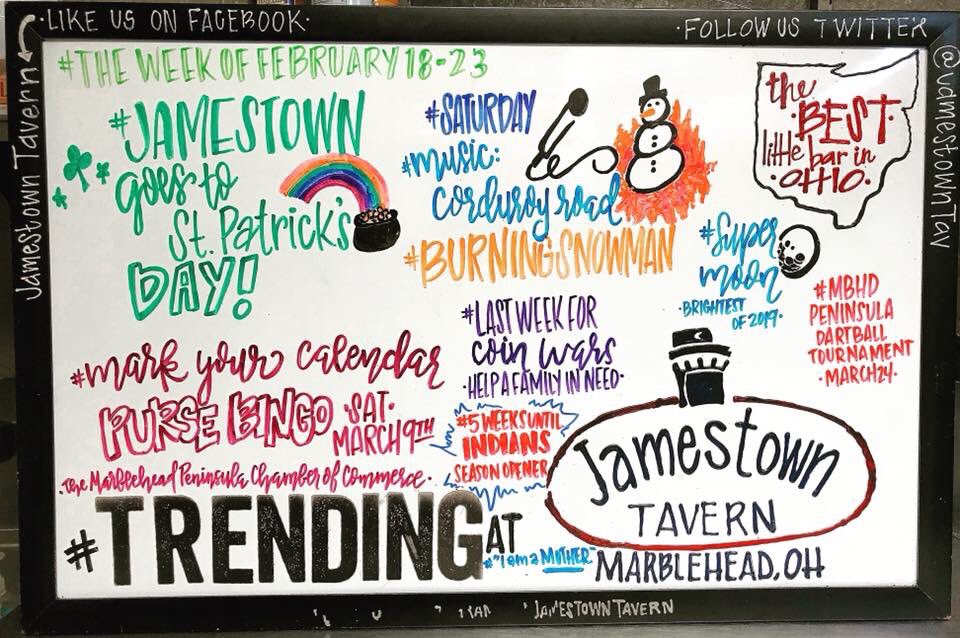 ·LIKE US ON FACEBOOK·
·FOLLOW US TWITTER
Jamestown Tavern
@JamestownTav
#THE WEEK OF FEBRUARY 18-23
#JAMESTOWN
goes to
St. Patrick's
DAY!
#SATURDAY
#music:
corduroy road
#BURNINGSNOWMAN
the
BEST
little
bar in
OHIO.
#Super
moon
·BRIGHTEST
OF 2019·
#MBHD
PENINSULA
DARTBALL
TOURNAMENT
·MARCH 24·
#LAST WEEK FOR
coin wars
·HELP A FAMILY IN NEED·
#mark your calendar
PURSE BINGO SAT·
MARCH 9TH
·The Marblehead Peninsula Chamber of Commerce·
#5 WEEKS UNTIL
INDIANS
SEASON OPENER
#TRENDING AT
#"I am a MUTHER"
Jamestown
TAVERN
MARBLEHEAD, OH
JAMESTOWN TAVERN